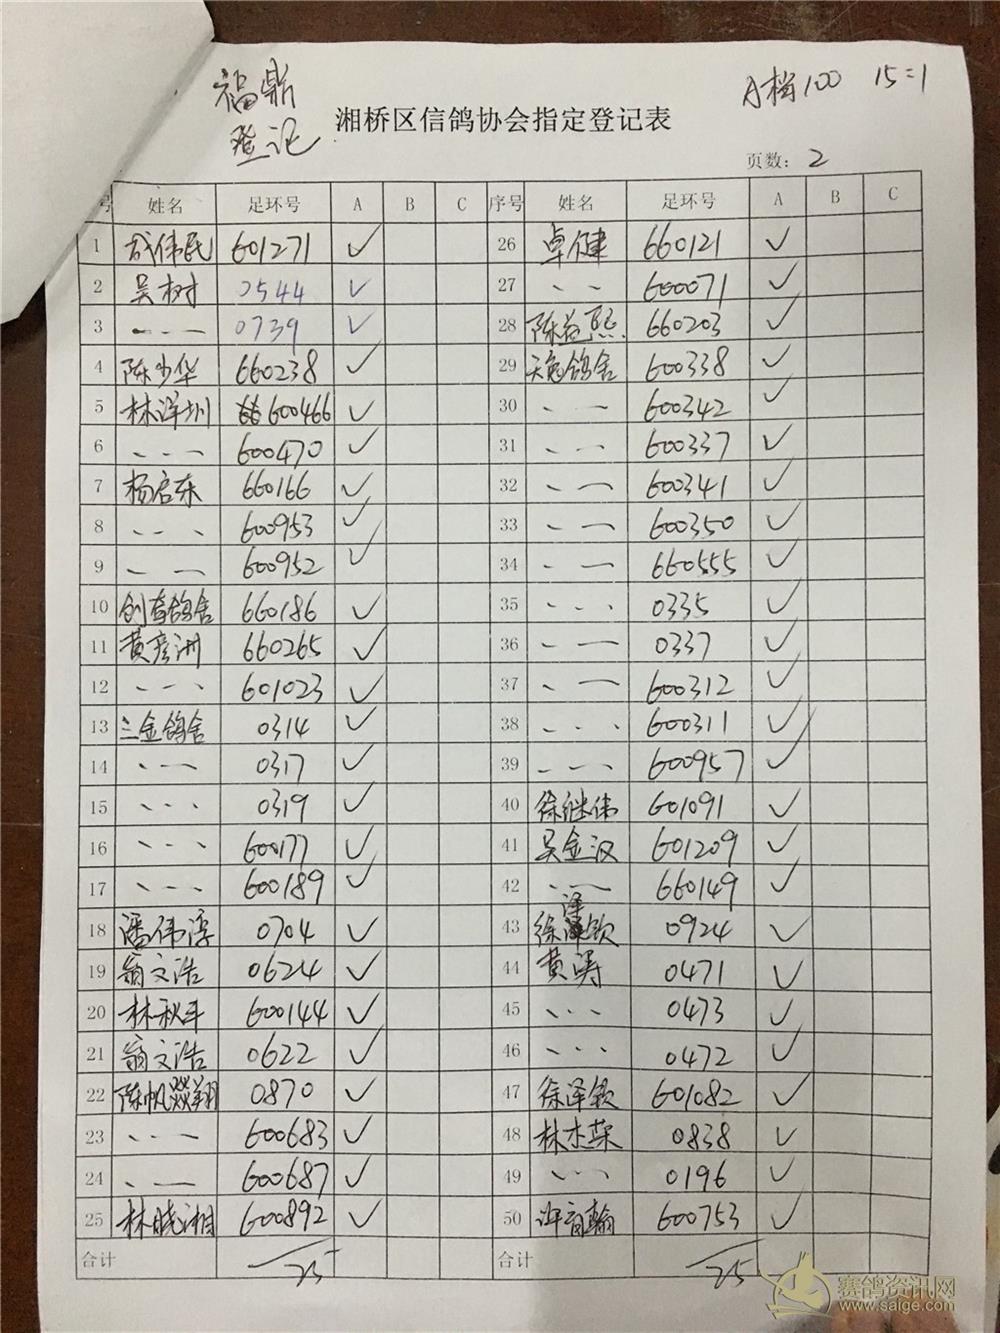 福鼎
登记
A档100 15=1
湘桥区信鸽协会指定登记表
页数: 2
号 姓名 足环号 A B C 序号 姓名 足环号 A B C
1 伟民 601271 ✓ 26 卓健 660121 ✓
2 吴树 0544 ✓ 27 、、 600071 ✓
3 、一一 0739 ✓ 28 陈益熙 660203 ✓
4 陈少华 660238 ✓ 29 天兔鸽舍 600338 ✓
5 林泽圳 600466 ✓ 30 、一 600342 ✓
6 、、、 600470 ✓ 31 、、、 600337 ✓
7 杨启东 660166 ✓ 32 、一 600341 ✓
8 、、、 600953 ✓ 33 、一 600350 ✓
9 、一 600952 ✓ 34 、一 660555 ✓
10 创奇鸽舍 660186 ✓ 35 、、、 0335 ✓
11 黄彦洲 660265 ✓ 36 、、一 0337 ✓
12 、、、 601023 ✓ 37 、一 600312 ✓
13 三金鸽舍 0314 ✓ 38 、、、 600311 ✓
14 、一一 0317 ✓ 39 、一一 600957 ✓
15 、、、 0319 ✓ 40 徐继伟 601091 ✓
16 、、、 600177 ✓ 41 吴金汉 601209 ✓
17 、、、 600189 ✓ 42 、、一 660149 ✓
18 潘伟淳 0704 ✓ 43 徐泽钦 0924 ✓
19 翁文浩 0624 ✓ 44 黄涛 0471 ✓
20 林秋平 600144 ✓ 45 、、、 0473 ✓
21 翁文浩 0622 ✓ 46 、、、 0472 ✓
22 陈帆燚翔 0870 ✓ 47 徐泽钦 601082 ✓
23 、、、 600683 ✓ 48 林木荣 0838 ✓
24 、一 600687 ✓ 49 、、、 0196 ✓
25 林晓湘 600892 ✓ 50 许育翰 600753 ✓
合计 25 合计 25
赛鸽资讯网
www.saige.com